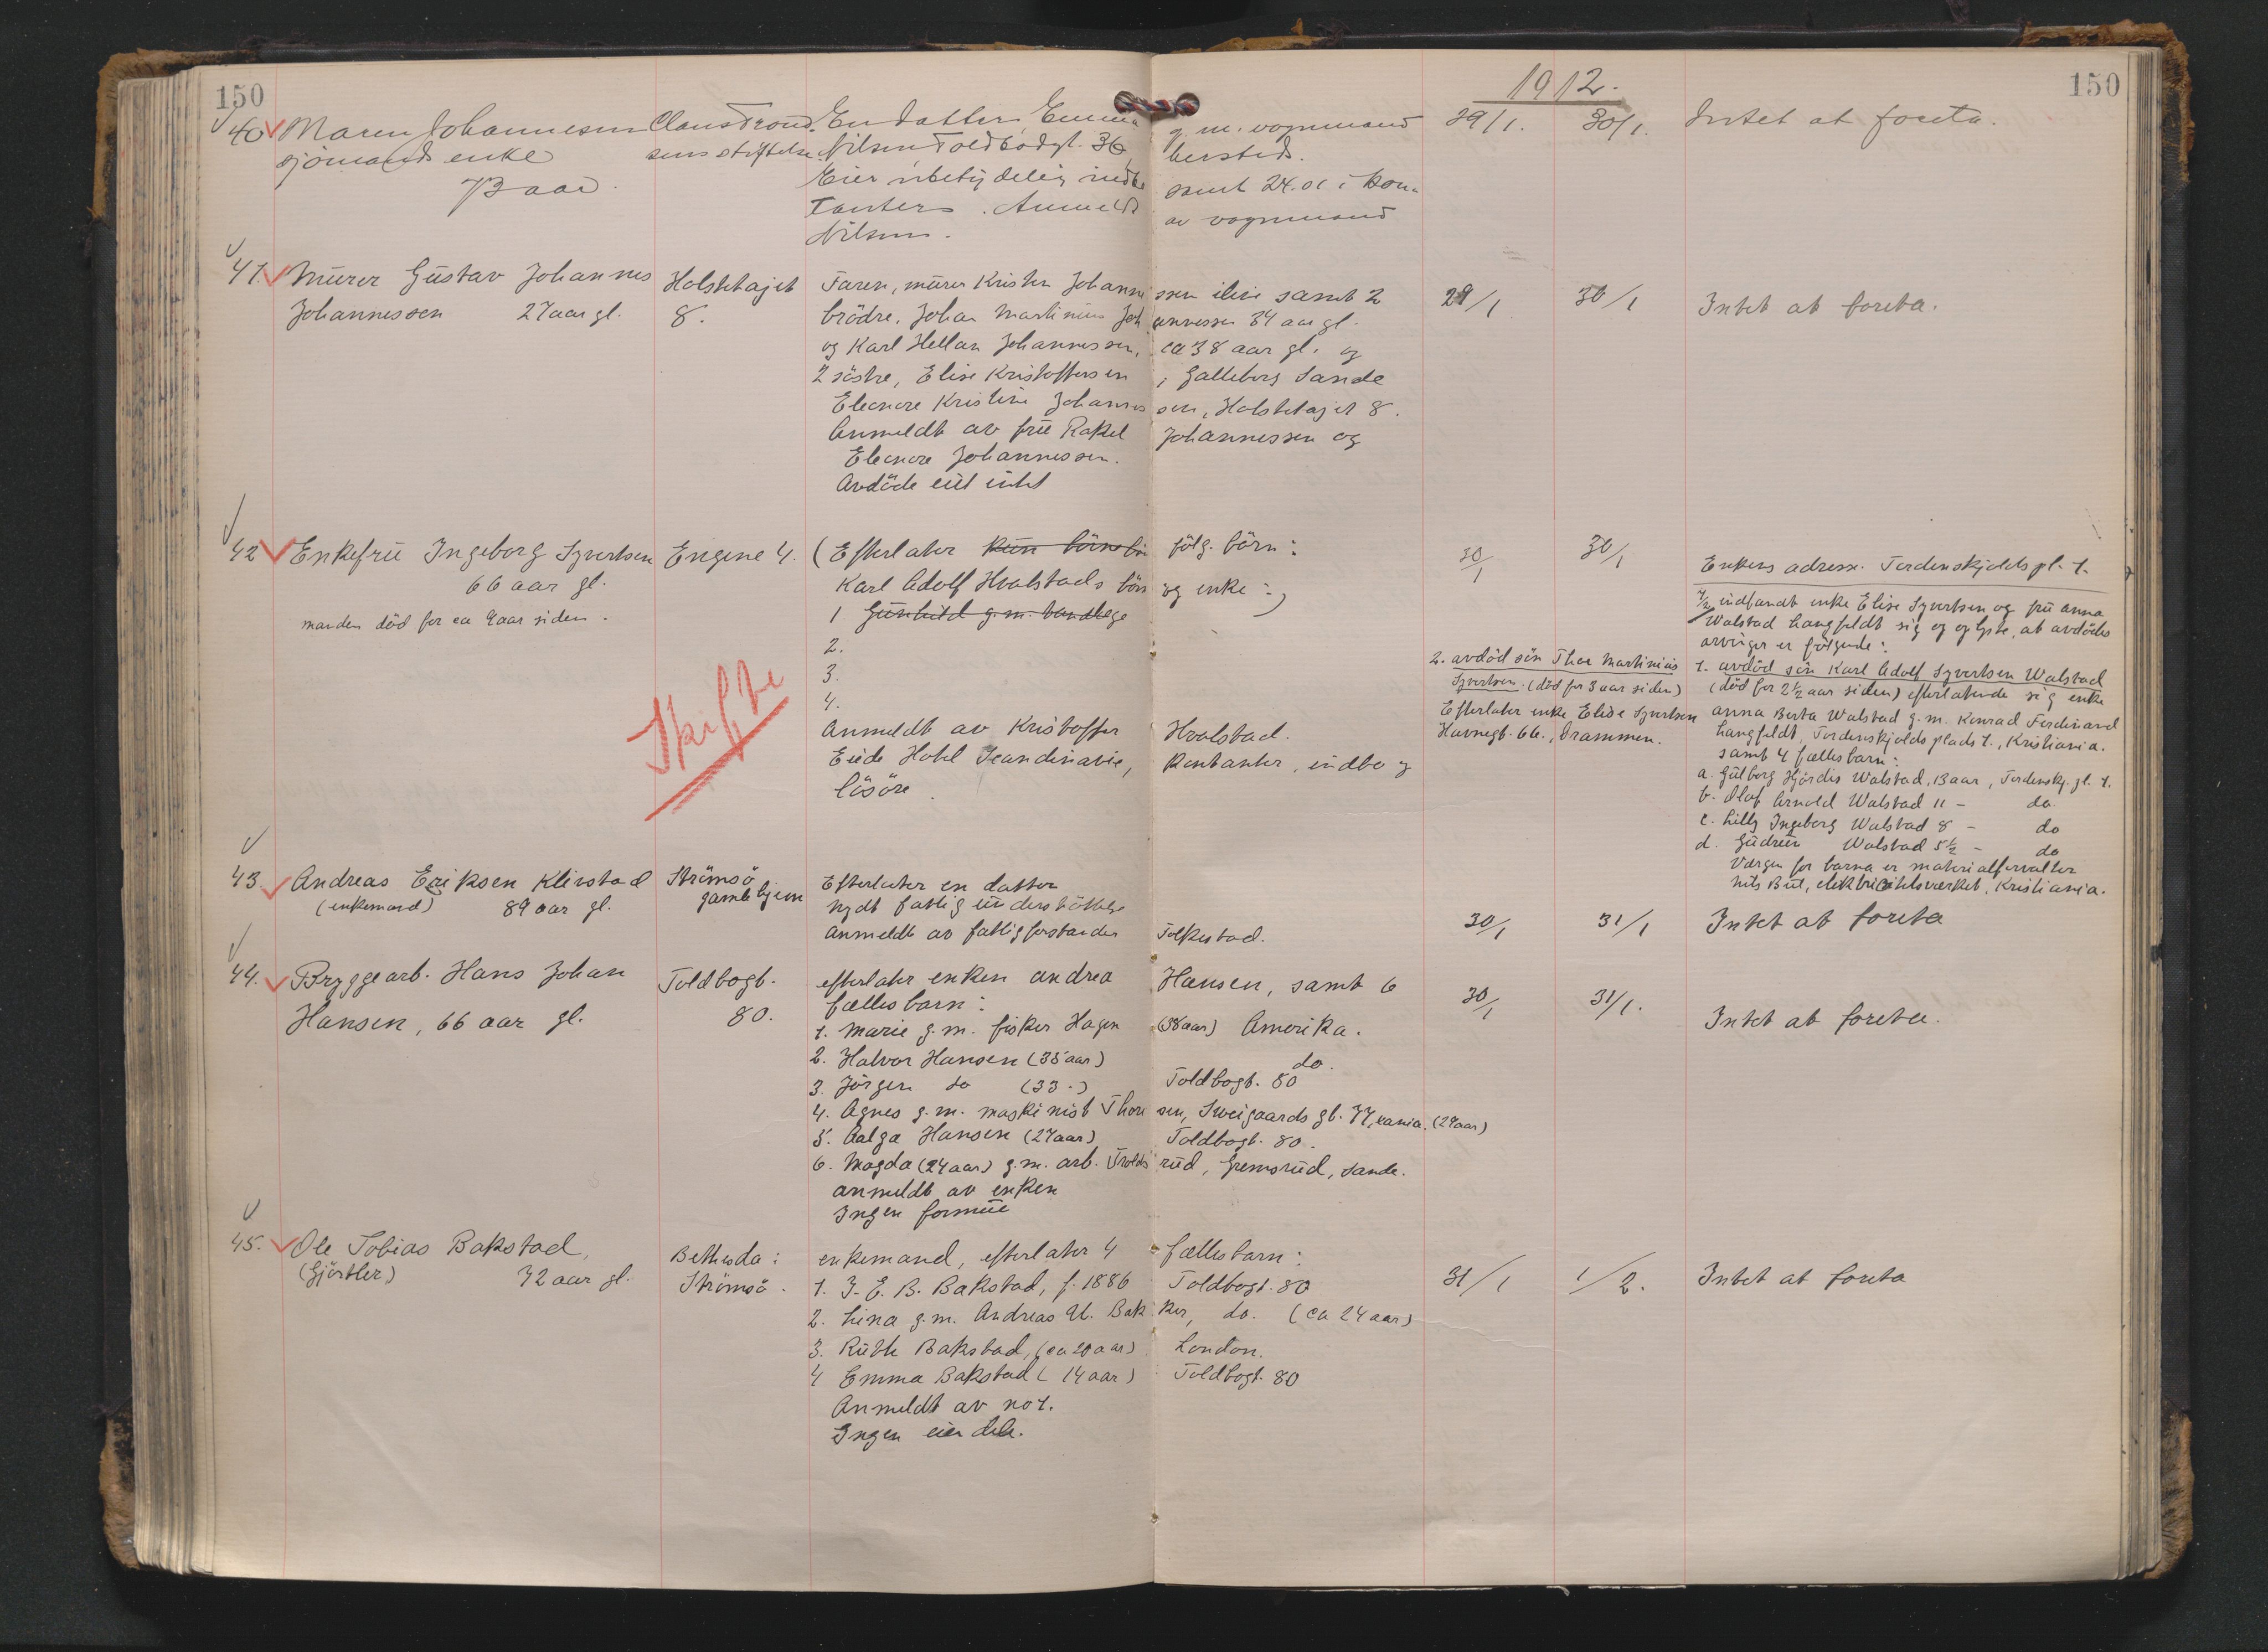 150
150
1912.
40 Maren Johannesen
sjömands enke
Claus Trond.
sens stiftelse.
En datter, Emma g. m. vognmand
Nilsen, Toldbodgt. 36, hersteds.
Eier ubetydelig indbo samt 24.01 i kon-
tanter. Anmeldt av vognmand
Nilsen.
29/1. 30/1.
Intet at foreta.
41. Murer Gustav Johannes
Johannessen 27 aar gl.
Holstetajet
8.
Faren, murer Kristen Johannessen ilive samt 2
brödre, Johan Martinius Johannessen 34 aar gl.
og Karl Hellan Johannessen, ca 38 aar gl. og
2 söstre, Elise Kristoffersen i Galleberg Sande
Eleonore Kristine Johannessen, Holstetajet 8.
Anmeldt av frü Rakel Johannessen og
Eleonore Johannessen.
Avdöde eiet intet
29/1 30/1
Intet at foreta.
42 Enkefrü Ingeborg Syvertsen
66 aar gl.
manden död for ca 9 aar siden.
Engene 4.
(Efterlater kun börnebörn fölg. börn:
Karl Adolf Hvalstads börn og enke:)
1 Gunhild g.m. landhege
2.
3.
4.
Anmeldt av Kristoffer Hvalstad.
Eide Hotel Scandinavie, Kontanter, indbo og
lösöre.
Skifte
30/1 30/1
Enkens adresse. Tordenskjolds pl. 1.
7/2 indfandt enke Elise Syvertsen og frü Anna
Walstad Langfeldt sig og oplyste, at avdödes
arvinger er fölgende:
1. avdöd sön Karl Adolf Syvertsen Walstad
(död for 2½ aar siden) efterlatende sig enke
Anna Berta Walstad g.m. Konrad Ferdinand
Langfeldt, Tordenskjolds plads 1, Kristiania.
samt 4 fællesbarn:
a. Gulborg Hjördis Walstad, 13 aar, Tordenskj. pl. 1.
b. Olaf Arnold Walstad 11 - do
c. Lilly Ingeborg Walstad 8 - do
d. Güdrün Walstad 5½ - do
Værgen for barna er materialforvalter
Nils Bue, elektricitetsverket, Kristiania.
2. avdöd sön Thor Martinius
Syvertsen. (död for 3 aar siden)
Efterlater enke Elise Syvertsen
Havnegt. 66., Drammen.
43. Andreas Eriksen Klivstad
(enkemand) 89 aar gl.
Strömsö
gamlehjem
Efterlater en datter
Nydt fattigünderstöttelse
Anmeldt av fattigforstander Tolkestad.
30/1 31/1
Intet at foreta
44. Bryggearb. Hans Johan
Hansen, 66 aar gl.
Toldbogt.
80.
efterlater enken Andrea Hansen, samt 6
fællesbarn:
1. Marie g.m. fisker Hagen (38 aar) Amerika.
2. Halvor Hansen (35 aar) do.
3. Jörgen do (33 -) Toldbogt. 80
4. Agnes g.m. maskinist Thoresen, Sweigaards gt. 77, Kania. (29 aar)
5. Aalga Hansen (27 aar) Toldbogt. 80.
6. Magda (24 aar) g.m. arb. Troldsrüd, Gremsrüd, Sande.
anmeldt av enken
Ingen formüe
30/1 31/1.
Intet at foreta.
45. Ole Tobias Bakstad,
(Gjörtler) 72 aar gl.
Bethesda:
Strömsö.
enkemand, efterlater 4 fællesbarn:
1. J. E. B. Bakstad, f. 1886 Toldbogt. 80
2. Lina g.m. Andreas U. Bakker, do. (ca 24 aar)
3. Rüth Bakstad, (ca 20 aar) London.
4 Emma Bakstad (14 aar) Toldbogt. 80
Anmeldt av no 1.
Ingen eiendele.
31/1 1/2.
Intet at foreta